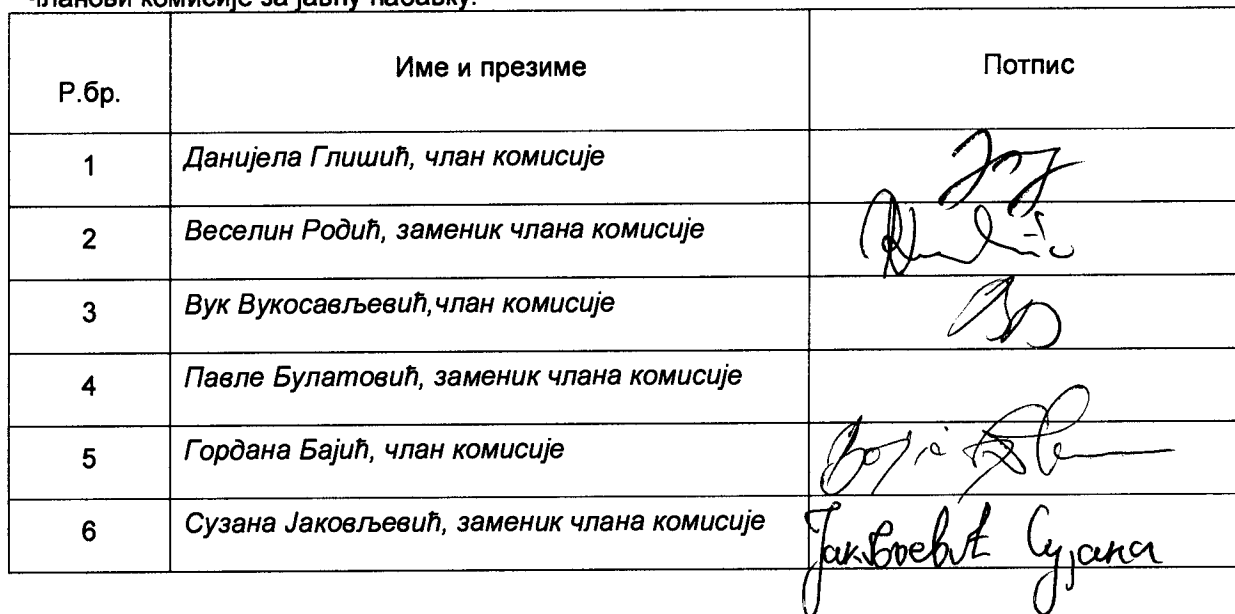 Чланови комисије за јавну набавку:
Р.бр.
Име и презиме
Потпис
1
Данијела Глишић, члан комисије
2
Веселин Родић, заменик члана комисије
3
Вук Вукосављевић,члан комисије
4
Павле Булатовић, заменик члана комисије
5
Гордана Бајић, члан комисије
6
Сузана Јаковљевић, заменик члана комисије
Јаковљевић Сузана